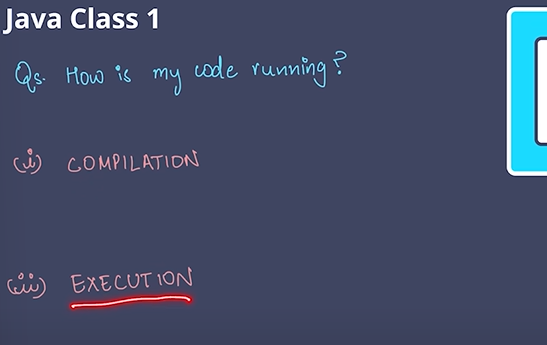 Java Class 1
Qs. How is my code running?
(i) COMPILATION
(ii) EXECUTION